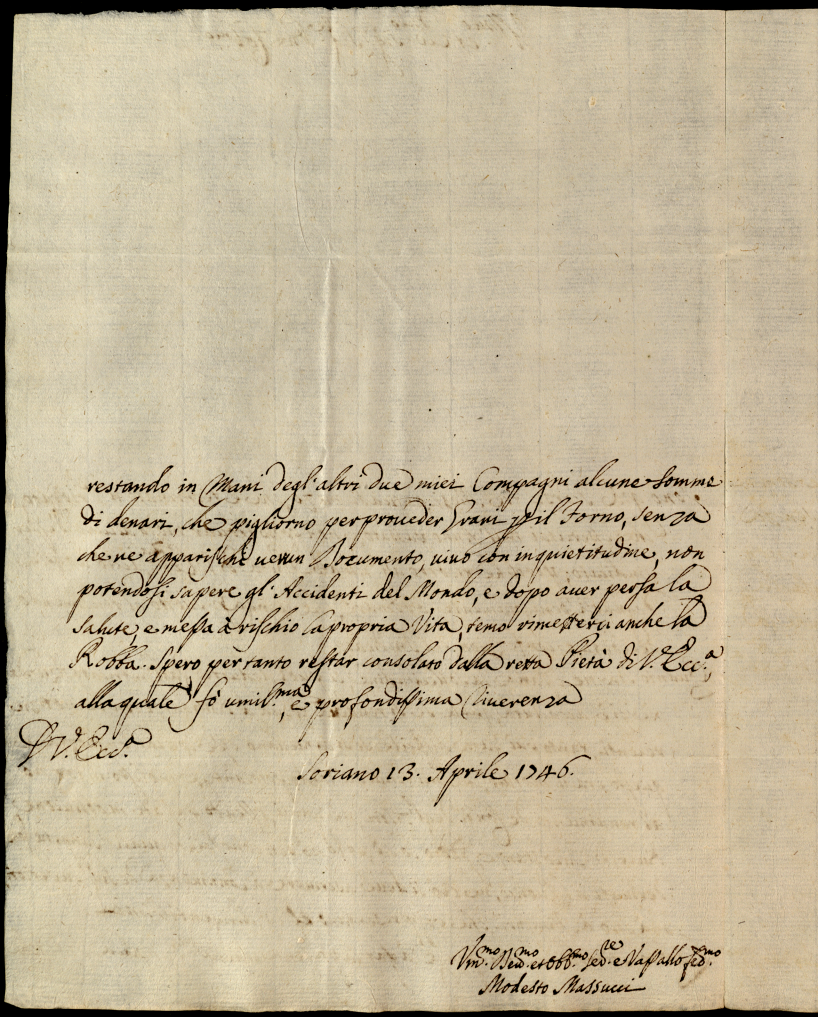 restando in Mani degl'altri due miei Compagni alcune somme
di denari, che pigliorno per proveder Grani p il Forno, senza
che ne apparischi verun Documento, vivo con inquietitudine, non
potendosi sapere gl'Accidenti del Mondo, e dopo aver persa la
salute, e messa à rischio la propria Vita, temo rimetterci anche la
Robba. Spero per tanto restar consolato dalla retta Pietà di V. Ecc.a,
alla quale fò umil.ma, e profondissima Riverenza
D V. Ecc.a
Soriano 13. Aprile 1746.
Um.mo Dev.mo et Obb.mo Ser.re e Vassallo fed.mo
Modesto Massucci